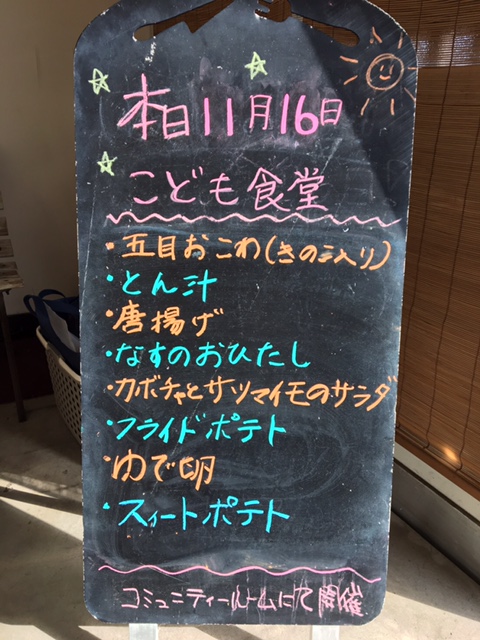 本日11月16日
こども食堂
・五目おこわ(きのこ入り)
・とん汁
・唐揚げ
・なすのおひたし
・カボチャとサツマイモのサラダ
・フライドポテト
・ゆで卵
・スィートポテト
コミュニティールームにて開催